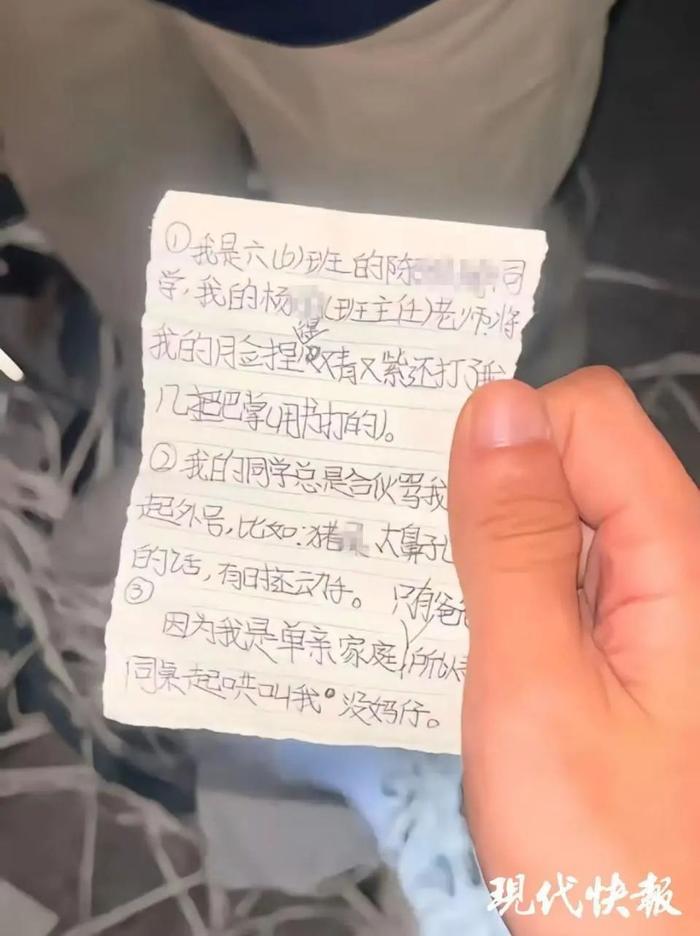 ①我是六(6)班的陈 同
学,我的杨 (班主任)老师将
我的脸捏得又青又紫还打了我
几把巴掌(用书打的)。
②我的同学总是合伙骂我
起外号,比如:猪 大鼻子
的话,有时还动手。 只有爸
③
因为我是单亲家庭,所以
同桌起哄叫我。没妈仔。
现代快報